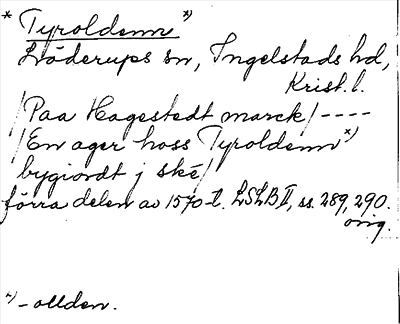 * Tyroldenn *)
Löderups sn, Ingelstads hd,
Krist. l.
/Paa Hagestedt marck/----
/En ager hoss Tyroldenn *)
bygiordt j ské/
förra delen av 1570-t. LSLB II, ss. 289, 290.
orig.
*) -ollden.